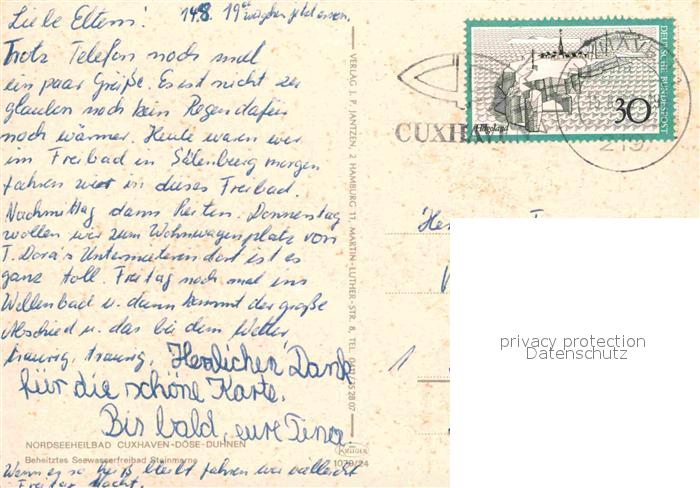 Liebe Eltern! 14.8. 19⁰⁰ jetzt essen.
Trotz Telefon noch mal
ein paar Grüße. Es ist nicht zu
glauben noch kein Regen dafür
noch wärmer. Heute waren wir
im Freibad in morgen
fahren wir in dieses Freibad.
Nachmittag dann Reiten. Donnerstag
wollen wir zum Wohnwagenplatz von
T. Dora's Untermietern dort ist es
ganz toll. Freitag noch mal ins
Wellenbad u. dann kommt der große
Abschied u. das bei dem Wetter
traurig, traurig. Herzlichen Dank
für die schöne Karte.
Bis bald, eure
NORDSEEHEILBAD CUXHAVEN-DÖSE-DUHNEN
Beheiztes Seewasserfreibad Steinmarne
Wenn es so heiß bleibt fahren wir vielleicht
Freitag Nacht.
VERLAG J. P. JANTZEN, 2 HAMBURG 11, MARTIN-LUTHER-STR. 8, TEL.
KRÜGER
1079/24
CUXHAV
DEUTSCHE BUNDESPOST
Helgoland
30
219
1
privacy protection
Datenschutz